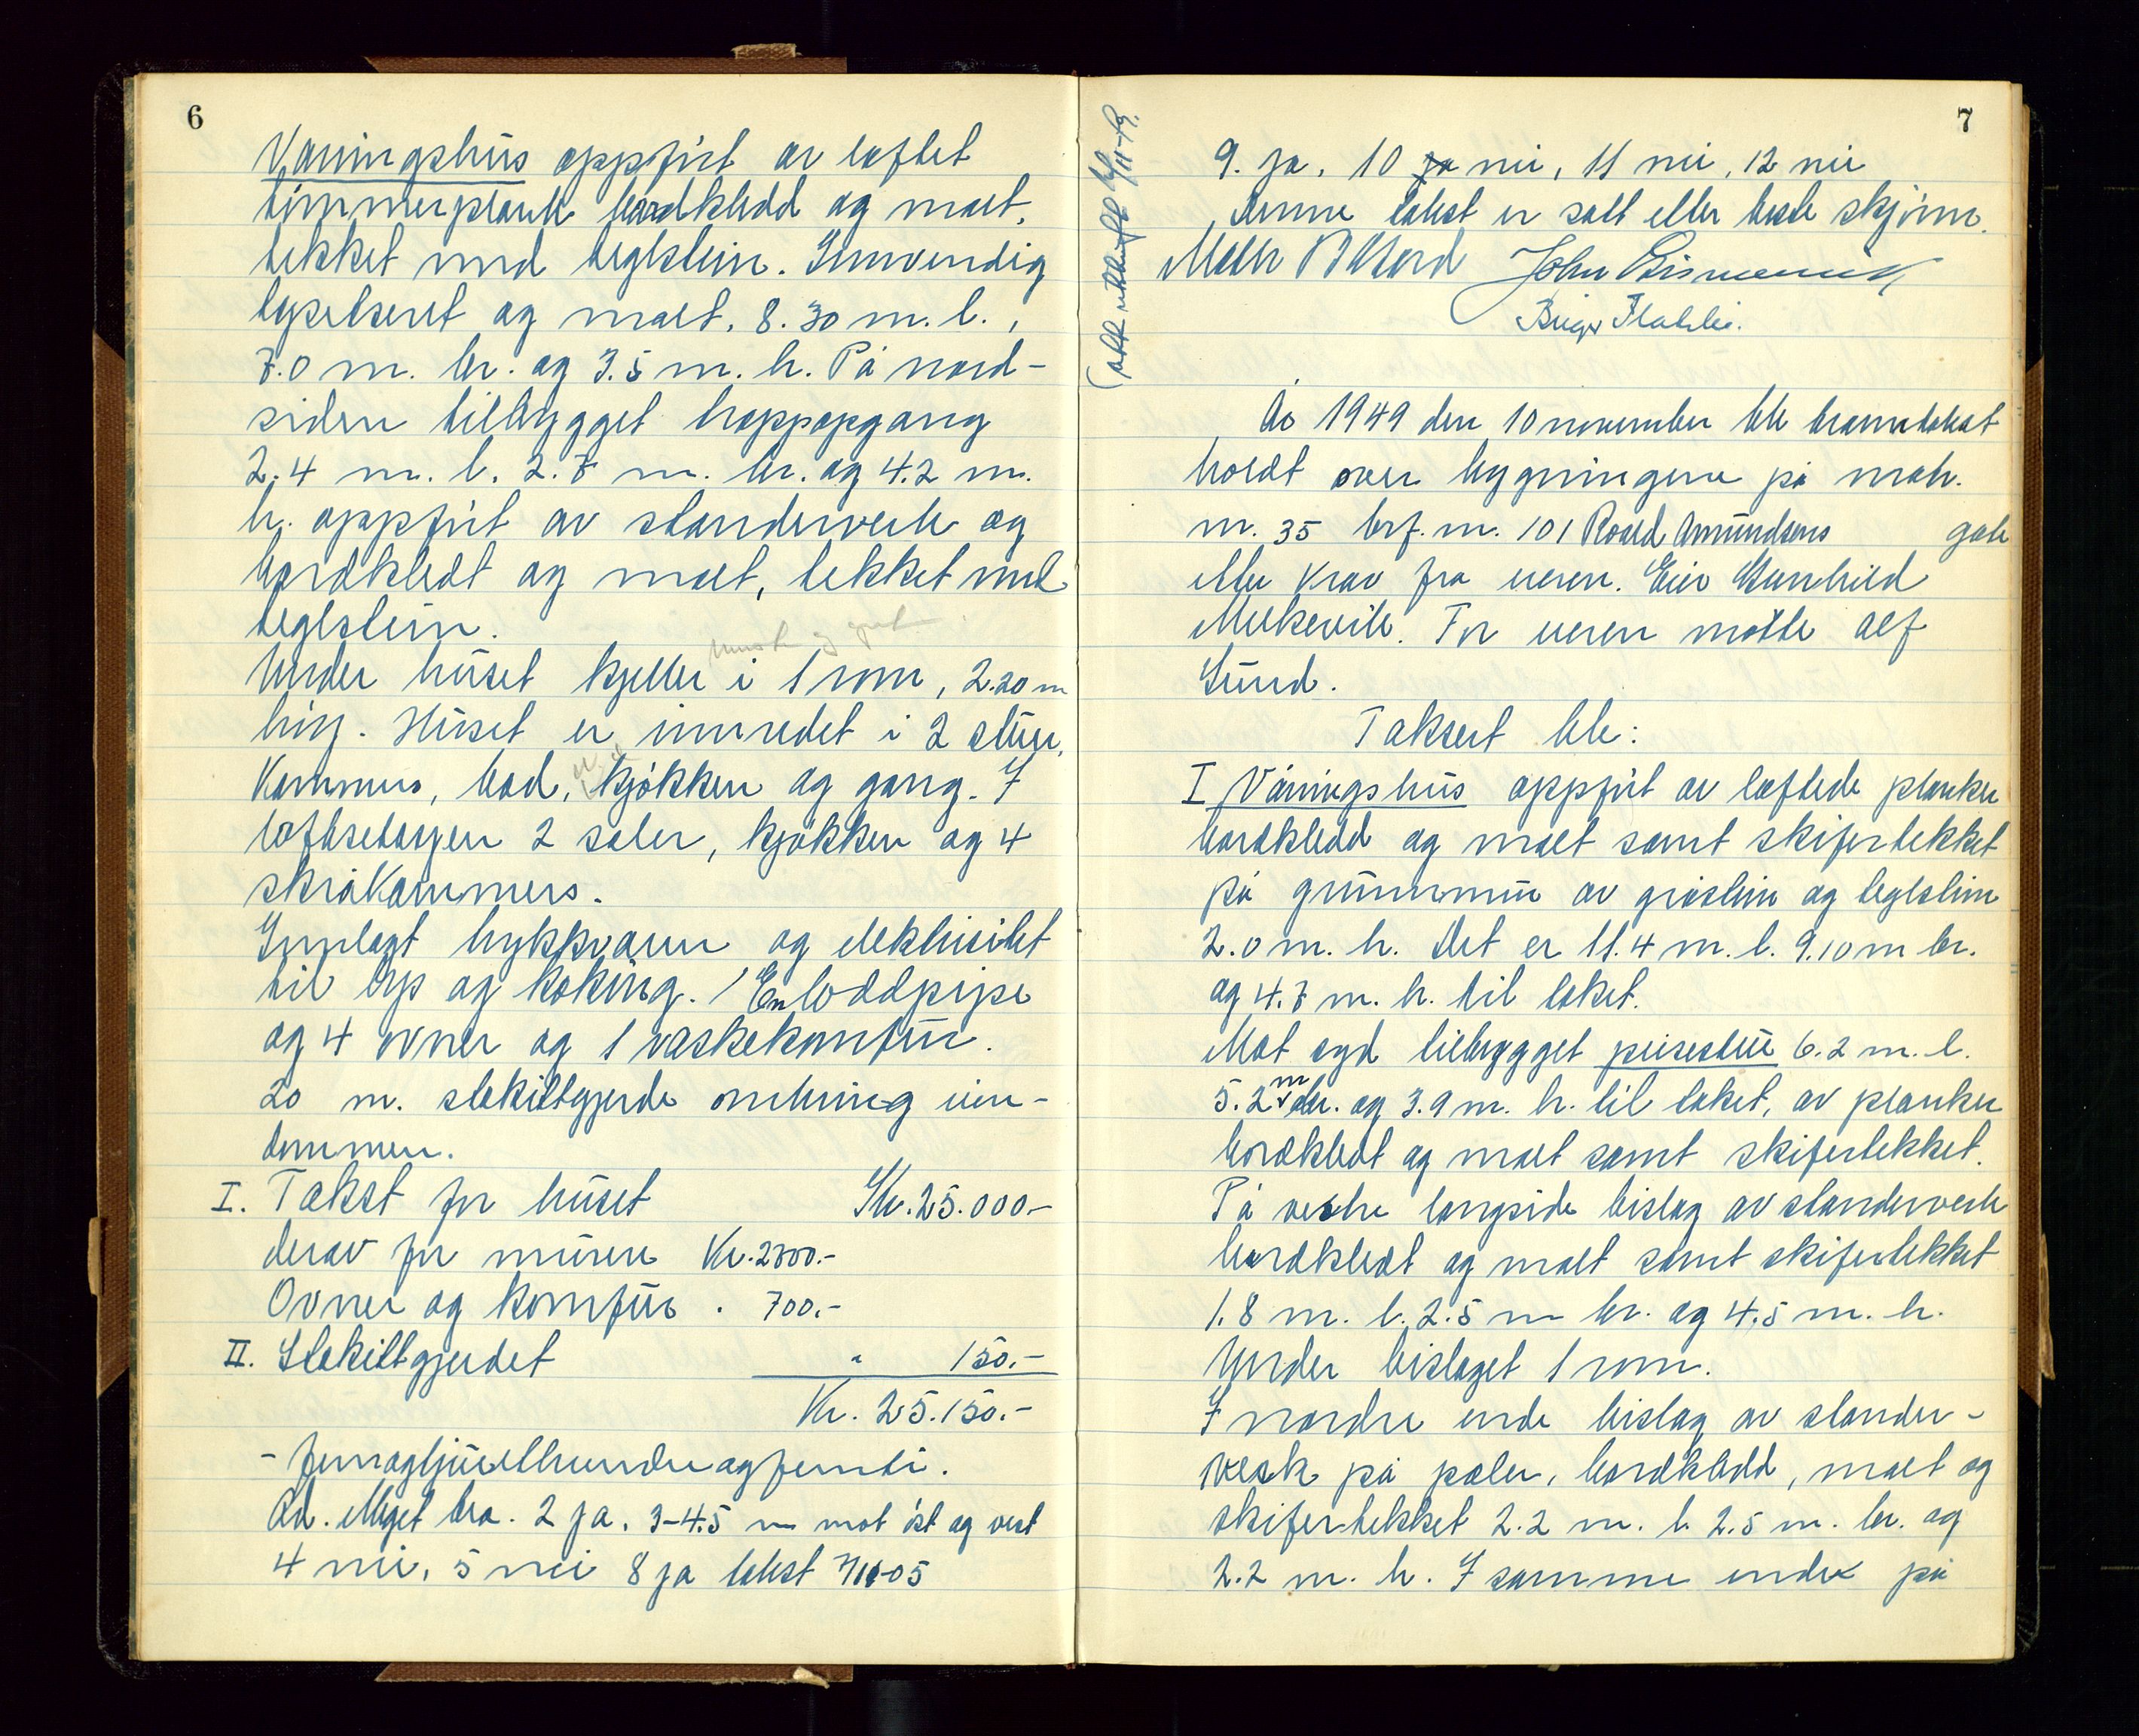 6
Våningshus oppført av laftet
timmerplank bordkledd og malt,
tekket med teglstein. Innvendig
tapetsert og malt. 8.30 m. l.,
7.0 m. br. og 3.5 m. h. På nord-
siden tilbygget trappopgang
2.4 m. l. 2.7 m. br. og 4.2 m.
h. oppført av standerverk og
bordkledt og malt, tekket med
teglstein.
Under huset kjeller i 1 rom, 2.20 m
høy. Huset er innredet i 2 stuer,
Kammers, bad, kjøkken og gang. I
loftsetasjen 2 saler, kjøkken og 4
skråkammers.
Innlagt trykkvann og elektrisitet
til lys og koking. En loddpipe
og 4 ovner og 1 vaskekomfur.
20 m. stakittgjerde omkring eien-
dommen.
I. Takst for huset Kr. 25.000.-
derav for muren Kr. 2700.-
Ovner og komfur . 700.-
II. Stakittgjerdet " 150.-
Kr. 25.150.-
- femogtjueetthundreogfemti.
Ad. Meget bra. 2 ja. 3-4.5 m mot øst og vest
4 nei, 5 nei 8 ja takst 7/11-05
7
9. ja, 10 ja nei, 11 nei, 12 nei
Denne takst er satt etter beste skjønn.
John
År 1949 den 10 november ble branntakst
holdt over bygningene på matr.
nr. 35 brf. nr. 101 Roald Amundsens gate
etter krav fra eieren. Eier Gunhild
Melkevik. For eieren møtte Alf
Lund.
Taksert ble:
I Våningshus oppført av laftede planker
bordkledd og malt samt skifertekket
på grunnmur av gråstein og teglstein
2.0 m. h. Det er 11.4 m. l. 9.10 m br.
og 4.7 m. h. til taket.
Mot syd tilbygget peisestue 6.2 m. l.
5.2 m br. og 3.9 m. h. til taket, av planker
bordkledt og malt samt skifertekket.
På vestre langside bislag av standerverk
bordkledt og malt samt skifertekket
1.8 m. l. 2.5 m br. og 4.5 m. h.
Under bislaget 1 rom.
I nordre ende bislag av stander-
verk på pæler, bordkledd, malt og
skifertekket 2.2 m. l. 2.5 m. br. og
2.2 m. h. I samme ende på